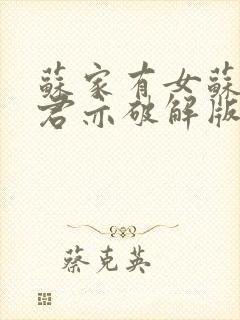 蘇家有女蘇
君亦破解版
蔡克英